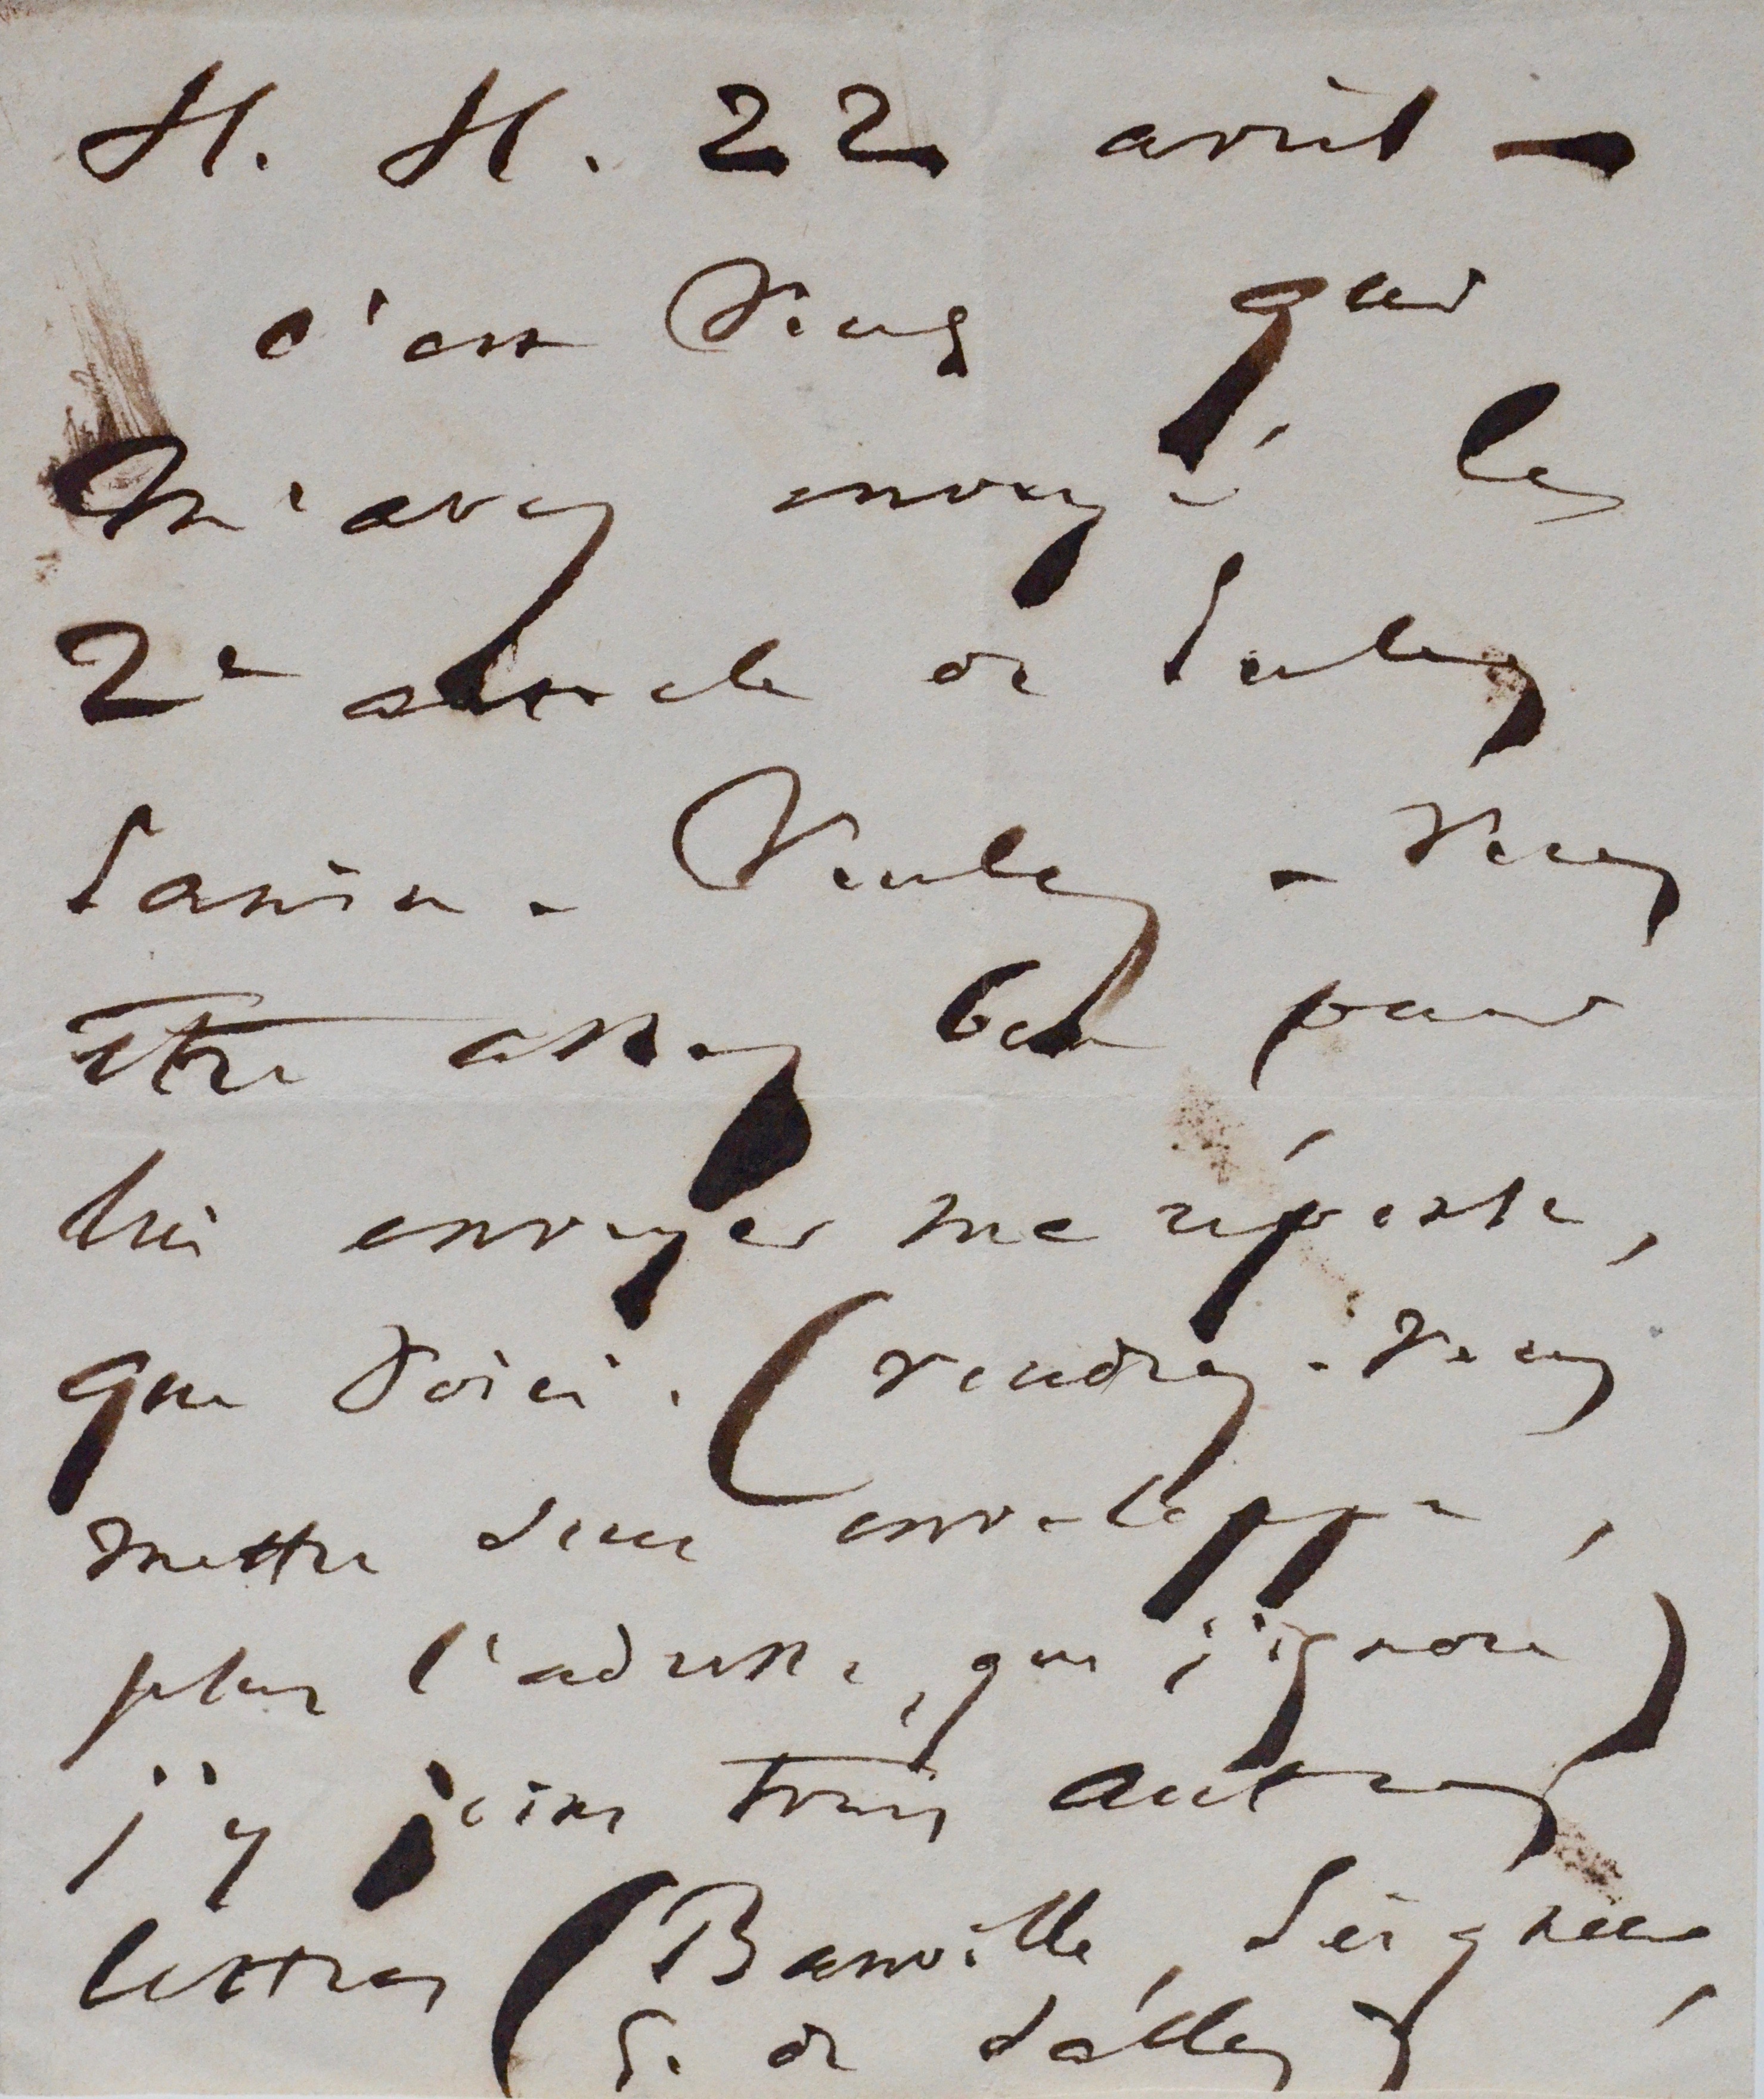 H. H. 22 avril —
c'est vous qui
m'avez envoyé le
2e article de Jules
Janin. Voulez-vous
être assez bon pour
lui envoyer ma réponse,
que voici. (veuillez-vous
mettre sous enveloppe,
plus l'adresse, que j'ignore)
j'y joins trois autres
lettres (Banville, Seigneur,
S. de